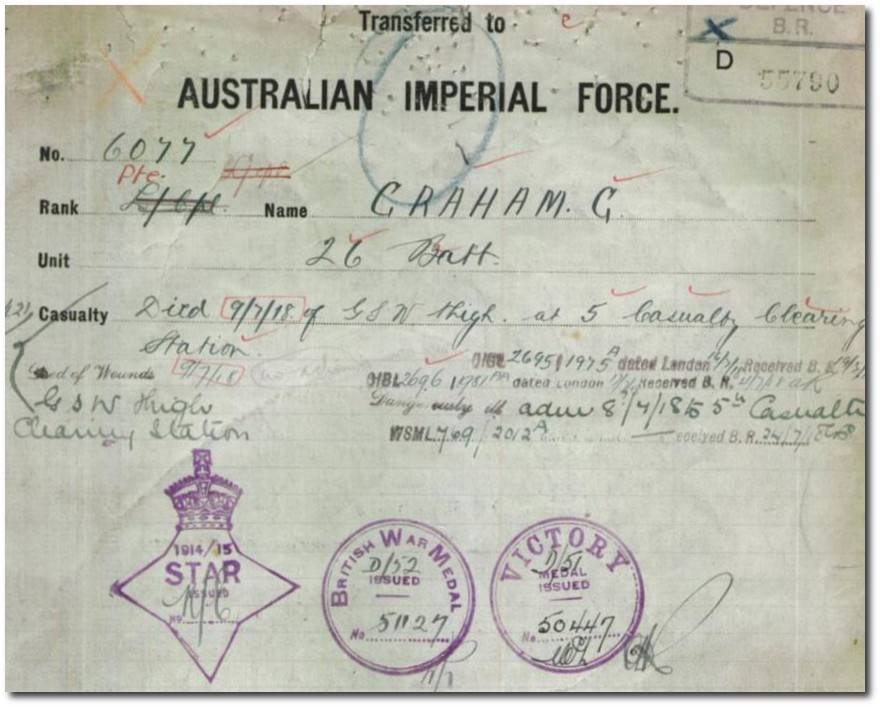 Transferred to
DEFENCE
B.R.
D
55790
AUSTRALIAN IMPERIAL FORCE.
No. 6077
Pte.
Rank L/Cpl. Name GRAHAM. G.
Unit 26 Batt.
Casualty Died 9/7/18 of G S W thigh. at 5 Casualty Clearing
Station.
Died of Wounds 9/7/18
O/BL 2695 1975A dated London Received B.R.
O/BL 2696 1981AA dated London Received B.R.
G S W thigh Dangerously ill adm 8/7/18 to 5th Casualty
Clearing Station
WSML 769/2012A Received B.R. 24/7/18
1914/15
STAR
ISSUED
No.
BRITISH WAR MEDAL
D/52
ISSUED
No 51127
VICTORY
D/51
MEDAL
ISSUED
No. 50447